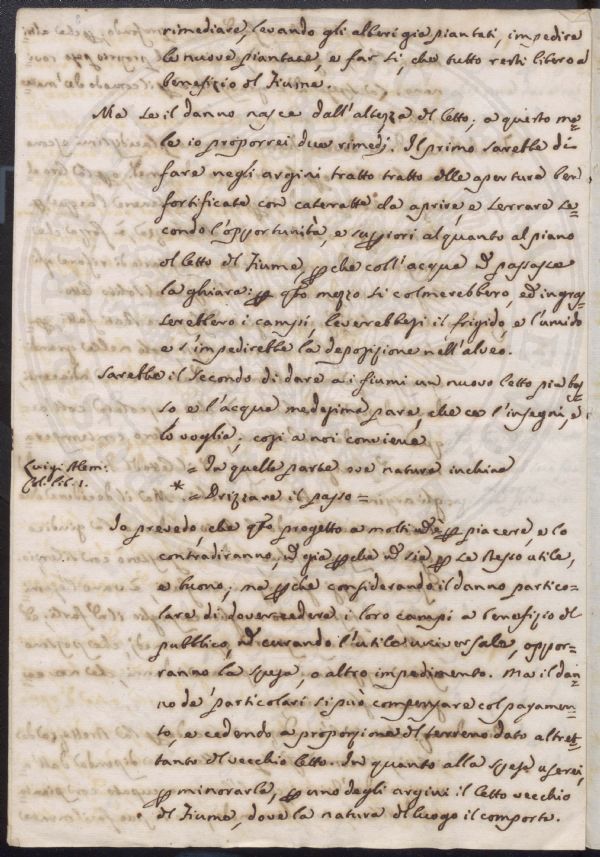 rimediare, levando gli alberi già piantati, impedire
le nuove piantate, e far sì, che tutto resti libero a
benefizio del Fiume.
Ma se il danno nasce dall'altezza del letto; a questo ma=
le io proporrei due rimedj. Il primo sarebbe di
fare negli argini tratto tratto delle aperture ben
fortificate con cateratte da aprire, e serrare se=
condo l'opportunità, e superiori alquanto al piano
del letto del Fiume, perche coll'acqua non passasse
la ghiara: per questo mezzo si colmerebbero, ed ingras=
serebbero i campi, leverebbesi il frigido, e l'umido
e s'impedirebbe la deposizione nell'alveo.
Sarebbe il secondo di dare a i fiumi un nuovo letto più bas=
so e l'acqua medesima pare, che ce l'insegni, e
lo voglia; così a noi conviene
Luigi Alem:
Col. lib. 1.
= In quella parte ove natura inchina
* = Drizzare il passo =
Io prevedo, che questo progetto a molti non è per piacere, e lo
contradiranno, non già perche non sia per se stesso utile,
e buono; ma perche considerando il danno partico=
lare di dover cedere i loro campi a benefizio del
pubblico, non curando l'utile universale, oppor=
ranno la spesa, o altro impedimento. Ma il dan=
no de' particolari si può compensare col pagamen=
to, e cedendo a proporzione del terreno dato altret=
tanto del vecchio letto. In quanto alla spesa
per minorarla, per uno degli argini il letto vecchio
del Fiume, dove la natura del luogo il comporta.